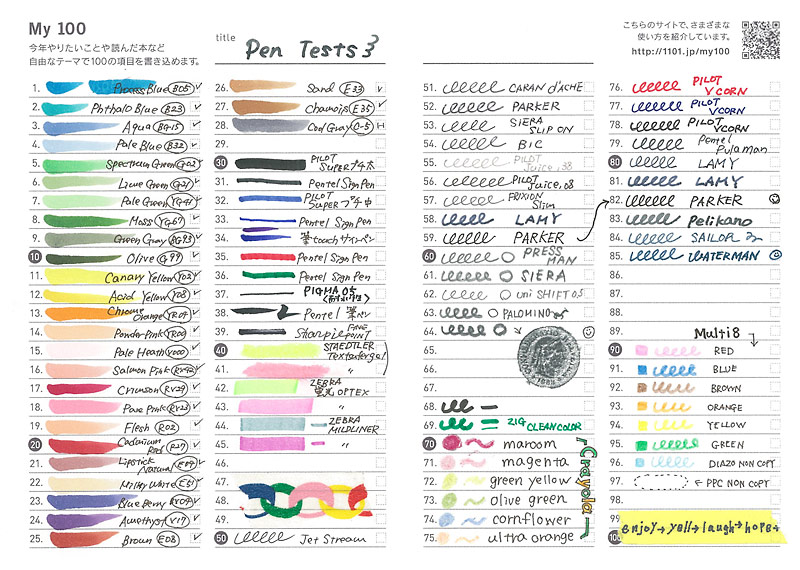 My 100
今年やりたいことや読んだ本など
自由なテーマで100の項目を書き込めます。
title
Pen Tests 3
こちらのサイトで、さまざまな
使い方を紹介しています。
http://1101.jp/my100
1. Process Blue B05
2. Phthalo Blue B23
3. Aqua BG15
4. Pale Blue B32
5. Spectrum Green G02
6. Lime Green G21
7. Pale Green YG41
8. Moss YG67
9. Green Gray BG93
10 Olive G99
11. Canary Yellow Y02
12. Acid Yellow Y08
13. Chrome Orange YR04
14. Powder Pink YR00
15. Pale Heath V000
16. Salmon Pink RV42
17. Crimson RV29
18. Pure Pink RV23
19. Flesh R02
20 Cadmium Red R27
21. Lipstick Natural E04
22. Milky White E51
23. Blue Berry BV04
24. Amethyst V17
25. Brown E08
26. Sand E33
27. Chamois E35
28. Cool Gray C-5
29.
30 PILOT SUPERプチ太
31. Pentel Sign Pen
32. PILOT Superプチ中
33. Pentel Sign Pen
34. 筆touchサインペン
35. Pentel Sign Pen
36. Pentel Sign Pen
37. PIGMA 05
38. Pentel 筆ペン
39. Sharpie FINE POINT
40 STAEDTLER Textsurfergel
41. 〃
42. ZEBRA 蛍光OPTEX
43. 〃
44. ZEBRA MILDLINER
45. 〃
46.
47.
48.
49.
50 Jet Stream
51. CARAN d'ACHE
52. PARKER
53. SIERA SLIP ON
54. BIC
55. PILOT Juice, 38
56. PILOT Juice, 08
57. FRIXION Slim
58. LAMY
59. PARKER
60 PRESS MAN
61. SIERA
62. uni SHIFT 0.5
63. PALOMINO
64.
65.
66.
67.
68.
69. ZIG CLEAN COLOR
70 maroom
71. magenta
72. green yellow
73. olive green
74. cornflower
75. ultra orange
Crayola
76. PILOT VCORN
77. PILOT VCORN
78. PILOT VCORN
79. Pentel Pulaman
80 LAMY
81. LAMY
82. PARKER
83. Pelikano
84. SAILOR
85. WATERMAN
86.
87.
88.
89. Multi8
90 RED
91. BLUE
92. BROWN
93. ORANGE
94. YELLOW
95. GREEN
96. DIAZO NON COPY
97. ← PPC NON COPY
98.
99.
100 enjoy→yell→laugh→hope→